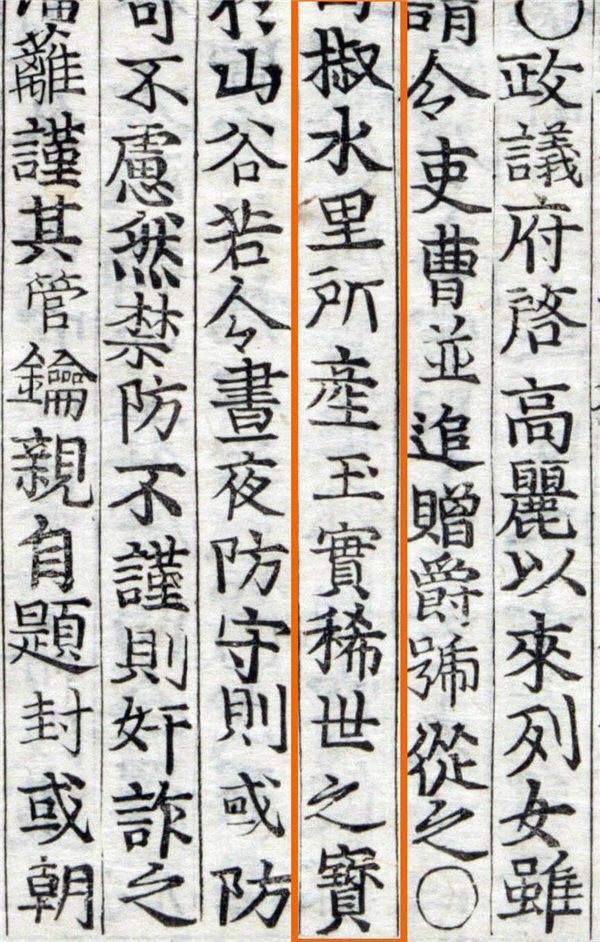 ○政議府啓高麗以來列女雖
請令吏曹並追贈爵號從之○
椒水里所產玉實稀世之寶
於山谷若令晝夜防守則或防
可不慮然禁防不謹則奸詐之
離謹其管鑰親自題封或朝